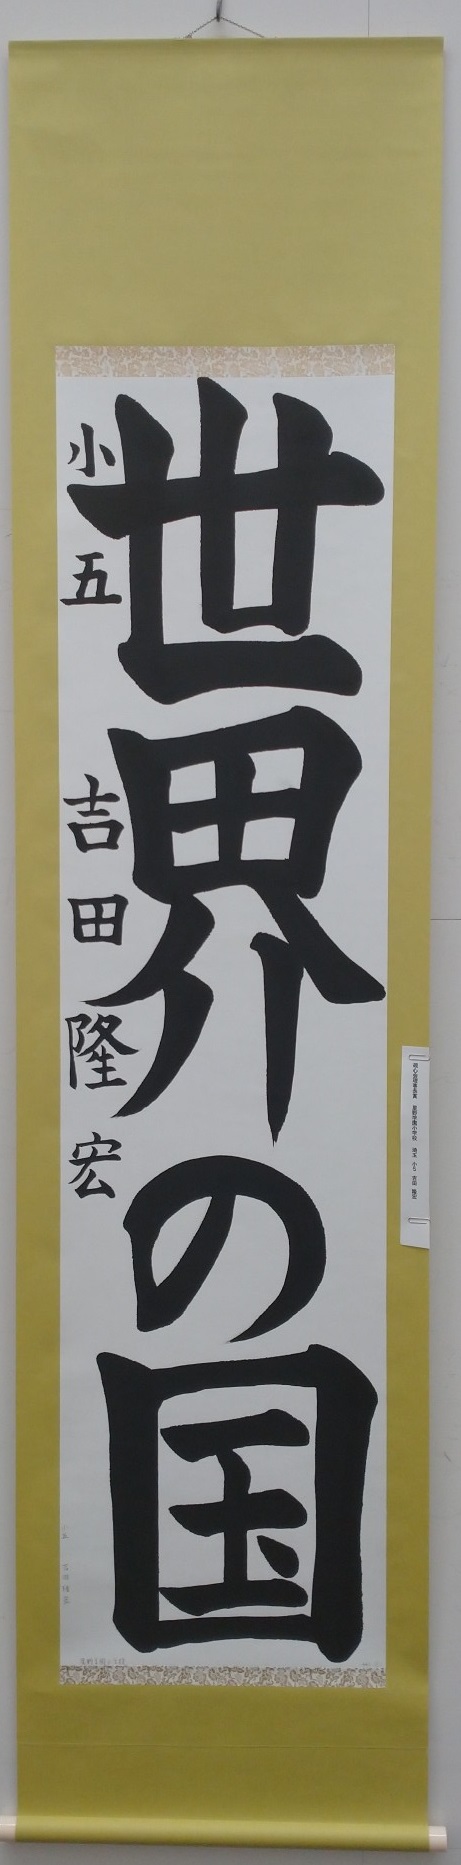 世界の国
小五 吉田隆宏